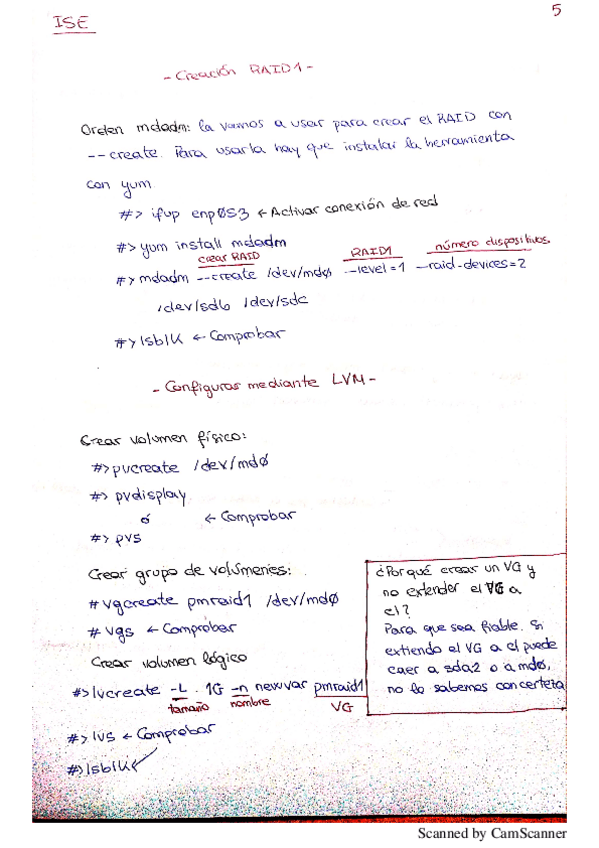 ISE
5
- Creación RAID1 -
Orden mdadm: la vamos a usar para crear el RAID con
--create. Para usarla hay que instalar la herramienta
con yum.
#> ifup enp0S3 ← Activar conexión de red
#> yum install mdadm
crear RAID RAID1 número dispositivos
#> mdadm --create /dev/md0 --level=1 --raid-devices=2
/dev/sdb /dev/sdc
#> lsblk ← Comprobar
- Configurar mediante LVM -
Crear volumen físico:
#> pvcreate /dev/md0
#> pvdisplay
ó ← Comprobar
#> pvs
Crear grupo de volúmenes:
# vgcreate pmraid1 /dev/md0
# vgs ← Comprobar
Crear volumen lógico
#> lvcreate -L 1G -n newvar pmraid1
tamaño nombre VG
#> lvs ← Comprobar
#> lsblk
¿Por qué crear un VG y
no extender el VG a
el?
Para que sea fiable. Si
extiendo el VG a el puede
caer a sda2 o a md0,
no lo sabemos con certeza
Scanned by CamScanner